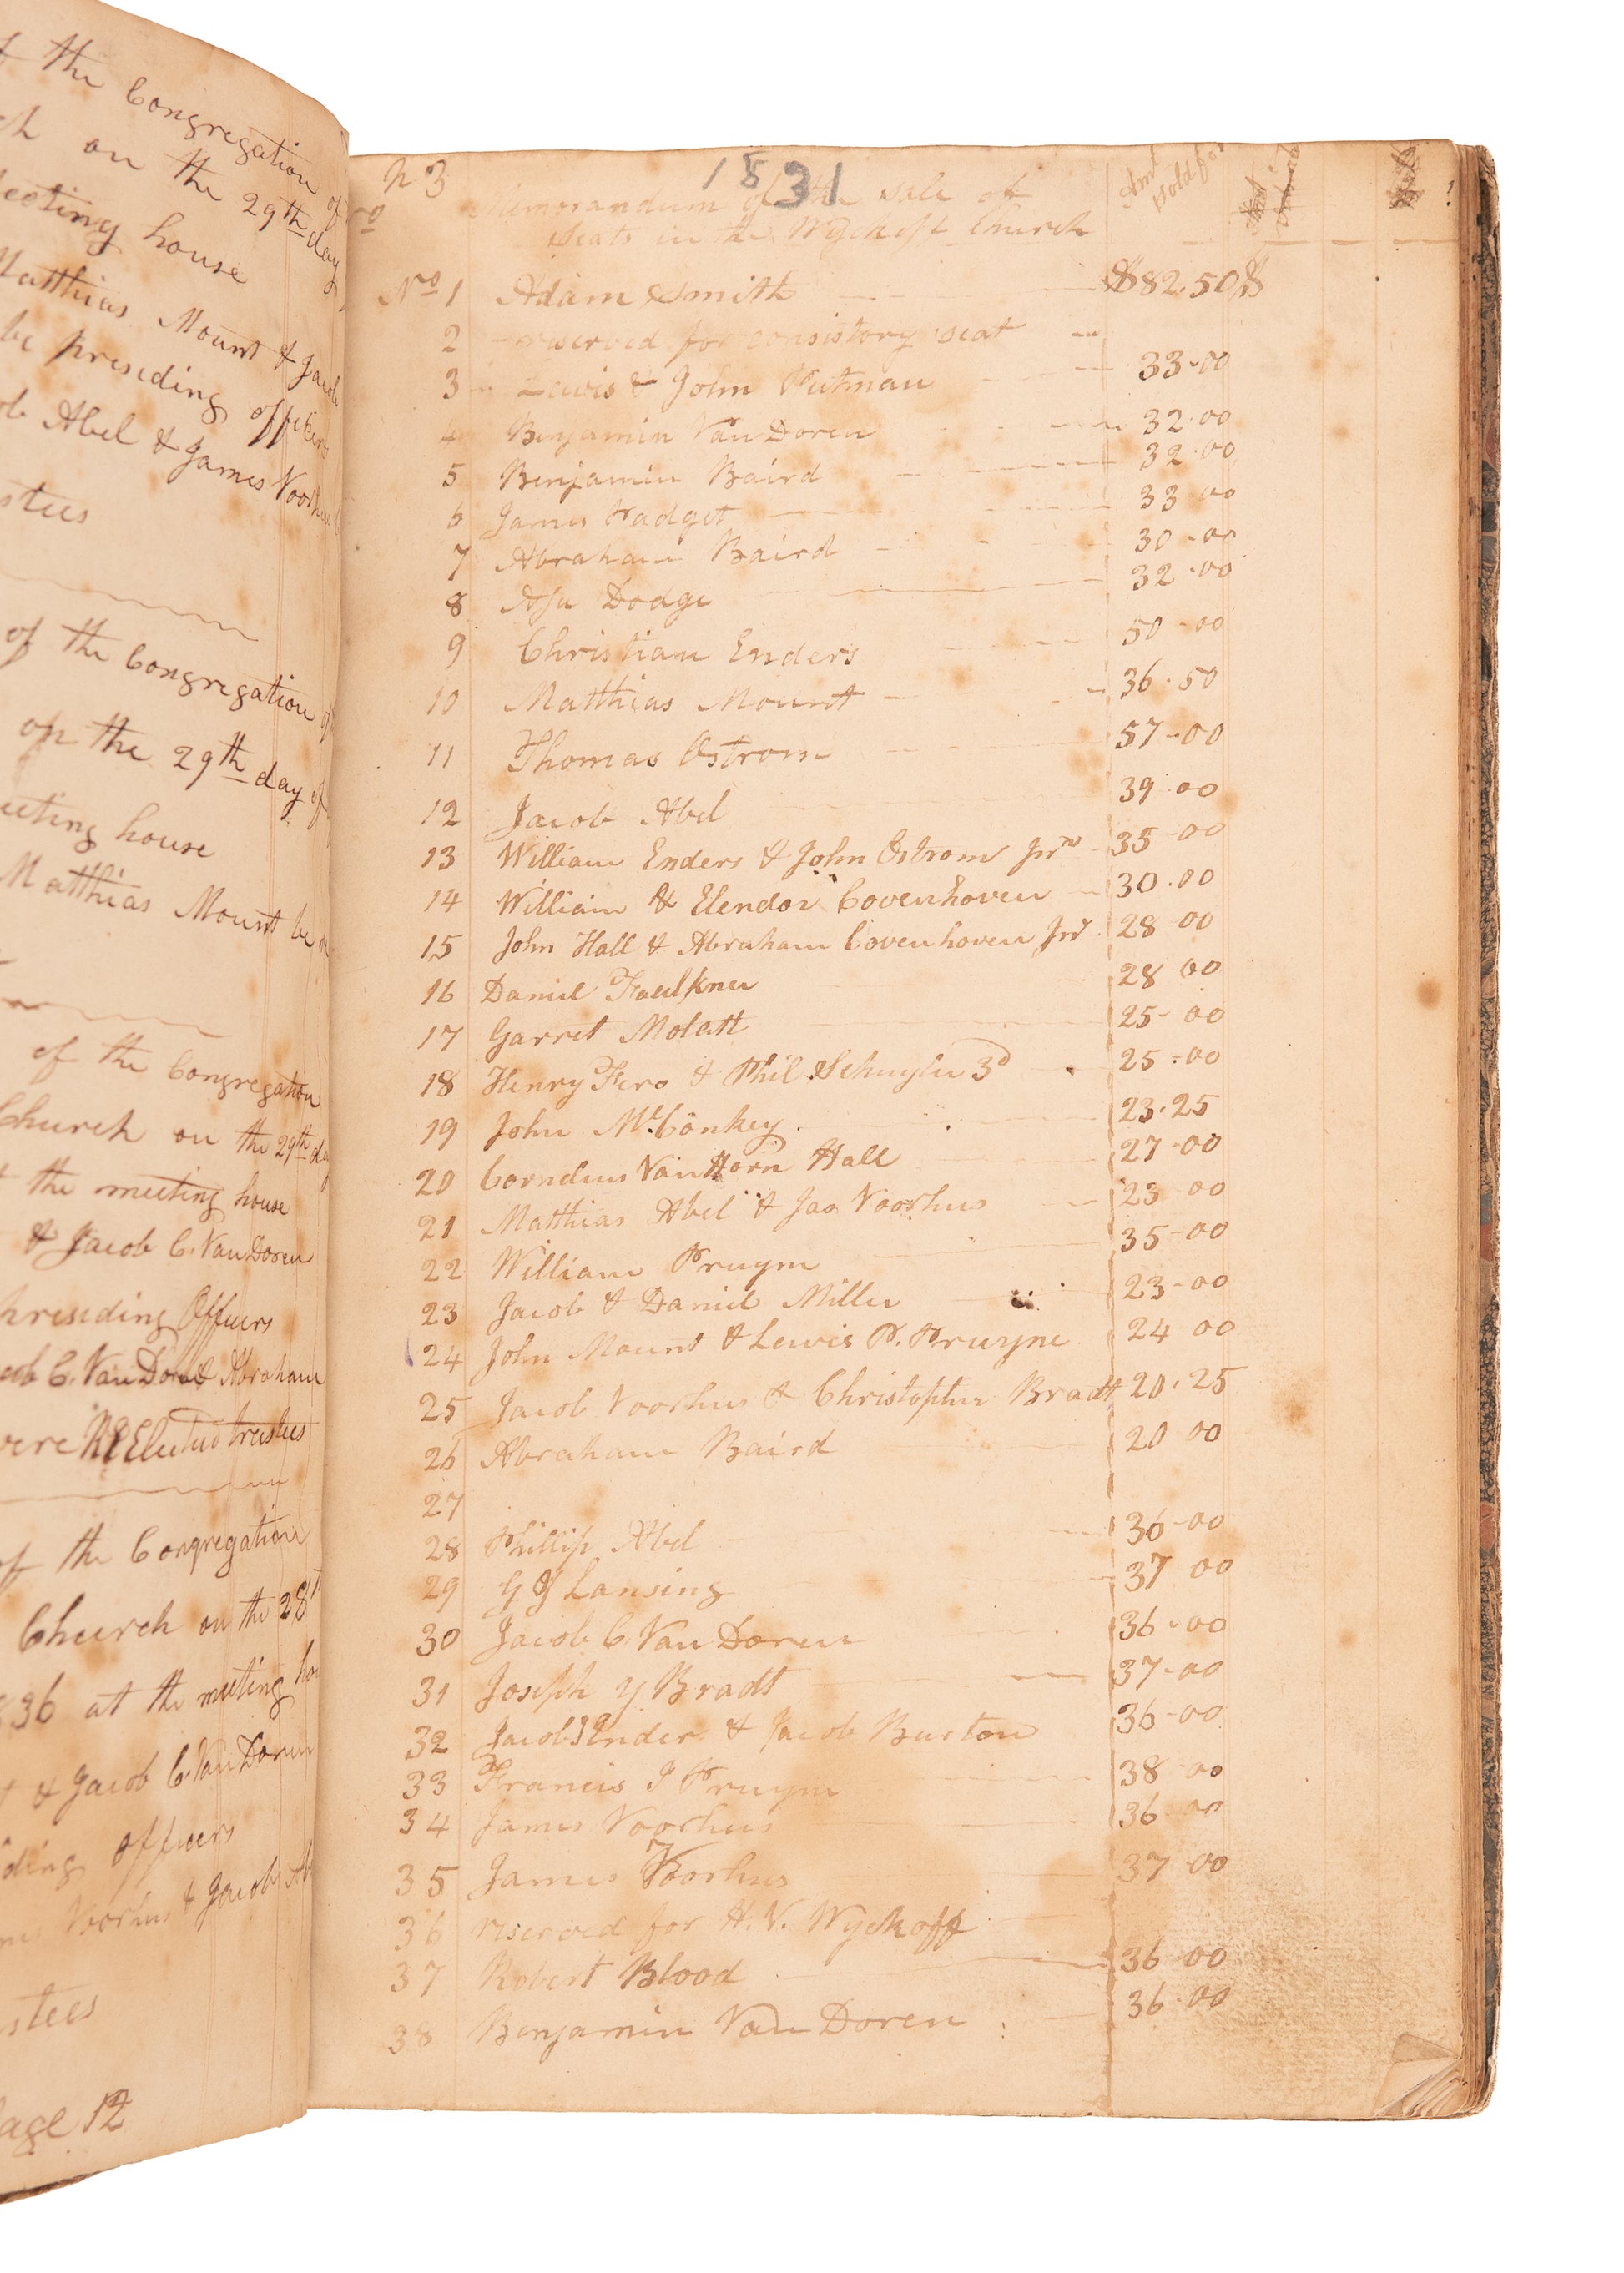 t the Congregation of
ch on the 29th day
eeting house
Matthias Mount & Jacob
be presiding officers
ob Abel & James Voorhees
stees
of the Congregation of
on the 29th day of
eeting house
Matthias Mount be
of the Congregation
Church on the 29th da
t the meeting house
& Jacob C. Van Doren
presiding Officers
cob C. Van Doren & Abraham
were REElected trustees
of the Congregation
Church on the 28t
836 at the meeting hou
& Jacob C. Van Doren
iding officers
Voorhees & Jacob Ab
stees
age 12
P 3
1831
Memorandum of the sale of
Seats in the Wyckoff Church
Amt sold for
No 1 Adam Smith $82.50 $
2 reserved for consistory seat
3 Lewis & John Putman 33-00
4 Benjamin Van Doren 32.00
5 Benjamin Baird 32.00
6 James Padget 33 00
7 Abraham Baird 30-00
8 Asa Dodge 32.00
9 Christian Enders 50-00
10 Matthias Mount 36.50
11 Thomas Ostrom 57-00
12 Jacob Abel 39-00
13 William Enders & John Ostrom Jnr 35-00
14 William & Elendor Covenhoven 30.00
15 John Hall & Abraham Covenhoven Jnr 28 00
16 Daniel Faulkner 28 00
17 Garret Molatt 25-00
18 Henry Fero & Phil Schuyler 3d 25-00
19 John McConkey 23.25
20 Cornelius Van Horn Hall 27-00
21 Matthias Abel & Jas Voorhees 23-00
22 William Pruym 35-00
23 Jacob & Daniel Miller 23-00
24 John Mount & Lewis P. Pruyne 24 00
25 Jacob Voorhees & Christopher Bradt 20.25
26 Abraham Baird 20 00
27
28 Phillip Abel 36-00
29 G J Lansing 37 00
30 Jacob C. Van Doren 36-00
31 Joseph Y Bradt 37-00
32 Jacob I Enders & Jacob Burton 36-00
33 Francis I Pruym 38-00
34 James Voorhees 36-00
35 James Voorhees 37 00
36 reserved for H. V. Wyckoff
37 Robert Blood 36-00
38 Benjamin Van Doren 36.00